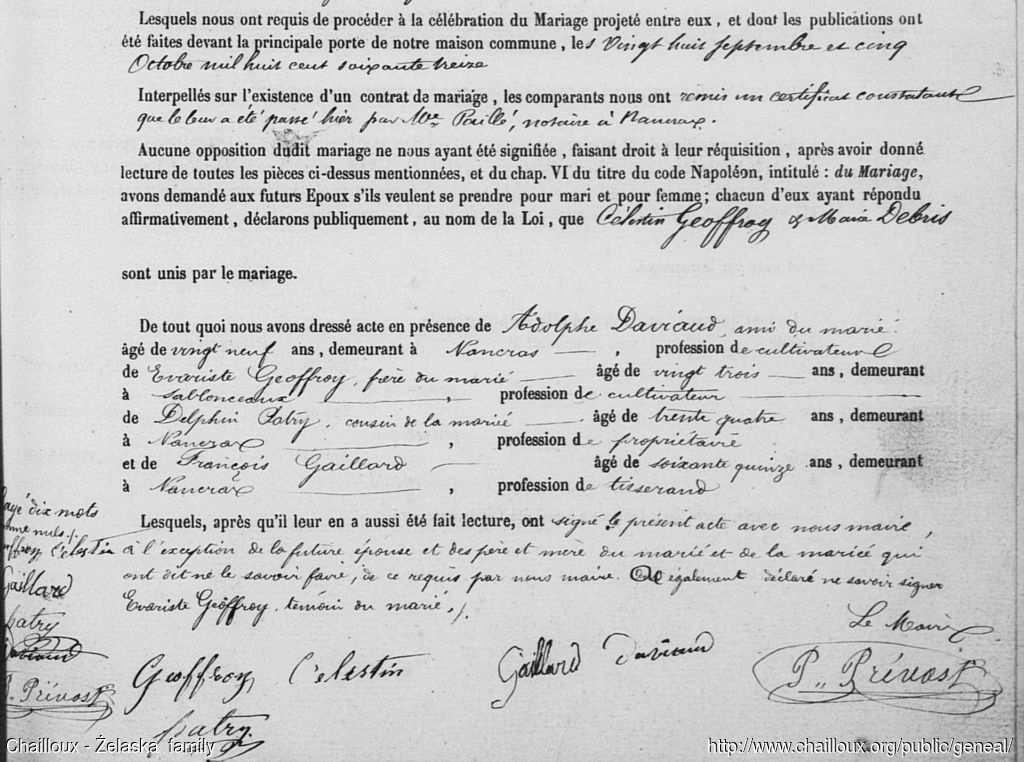 Lesquels nous ont requis de procéder à la célébration du Mariage projeté entre eux, et dont les publications ont
été faites devant la principale porte de notre maison commune, les Vingt huit septembre et cinq
Octobre mil huit cent soixante treize
Interpellés sur l'existence d'un contrat de mariage, les comparants nous ont remis un certificat constatant
que le leur a été passé hier par Me Paillé, notaire à Nancras.
Aucune opposition dudit mariage ne nous ayant été signifiée, faisant droit à leur réquisition, après avoir donné
lecture de toutes les pièces ci-dessus mentionnées, et du chap. VI du titre du code Napoléon, intitulé : du Mariage,
avons demandé aux futurs Epoux s'ils veulent se prendre pour mari et pour femme; chacun d'eux ayant répondu
affirmativement, déclarons publiquement, au nom de la Loi, que Célestin Geoffroy & Maria Debris
sont unis par le mariage.
De tout quoi nous avons dressé acte en présence de Adolphe Daviaud, ami du marié
âgé de vingt neuf ans, demeurant à Nancras, profession de cultivateur
de Evariste Geoffroy, frère du marié âgé de vingt trois ans, demeurant
à Sablonceaux, profession de cultivateur
de Delphin Patry, cousin de la mariée âgé de trente quatre ans, demeurant
à Nancras, profession de propriétaire
et de François Gaillard âgé de soixante quinze ans, demeurant
à Nancras, profession de tisserand
Lesquels, après qu'il leur en a aussi été fait lecture, ont signé le présent acte avec nous maire,
à l'exception de la future épouse et des père et mère du marié et de la mariée qui
ont dit ne le savoir faire, de ce requis par nous maire. également déclaré ne savoir signer
Evariste Geoffroy, temoin du marié,
Le Maire
Geoffroy Célestin Gaillard Daviaud P. Prévost
patry
dix mots
nuls
Célestin
Gaillard
patry
Daviaud
P. Prévost
Chailloux - Želaska family
http://www.chailloux.org/public/geneal/